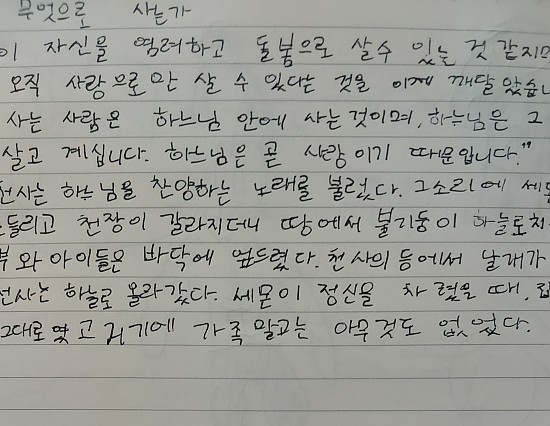 무엇으로 사는가
이 자신을 염려하고 돌봄으로 살수 있는 것 같지만
오직 사랑으로만 살 수 있다는 것을 이제 깨달았습니
사는 사람은 하느님 안에 사는것이며, 하느님은 그
살고 계십니다. 하느님은 곧 사랑이기 때문입니다."
천사는 하느님을 찬양하는 노래를 불렀다. 그소리에
들리고 천장이 갈라지더니 땅에서 불기둥이 하늘로
와 아이들은 바닥에 엎드렸다. 천사의 등에서 날개가
천사는 하늘로 올라갔다. 세몬이 정신을 차렸을 때,
그대로였고 거기에 가족말고는 아무것도 없었다.